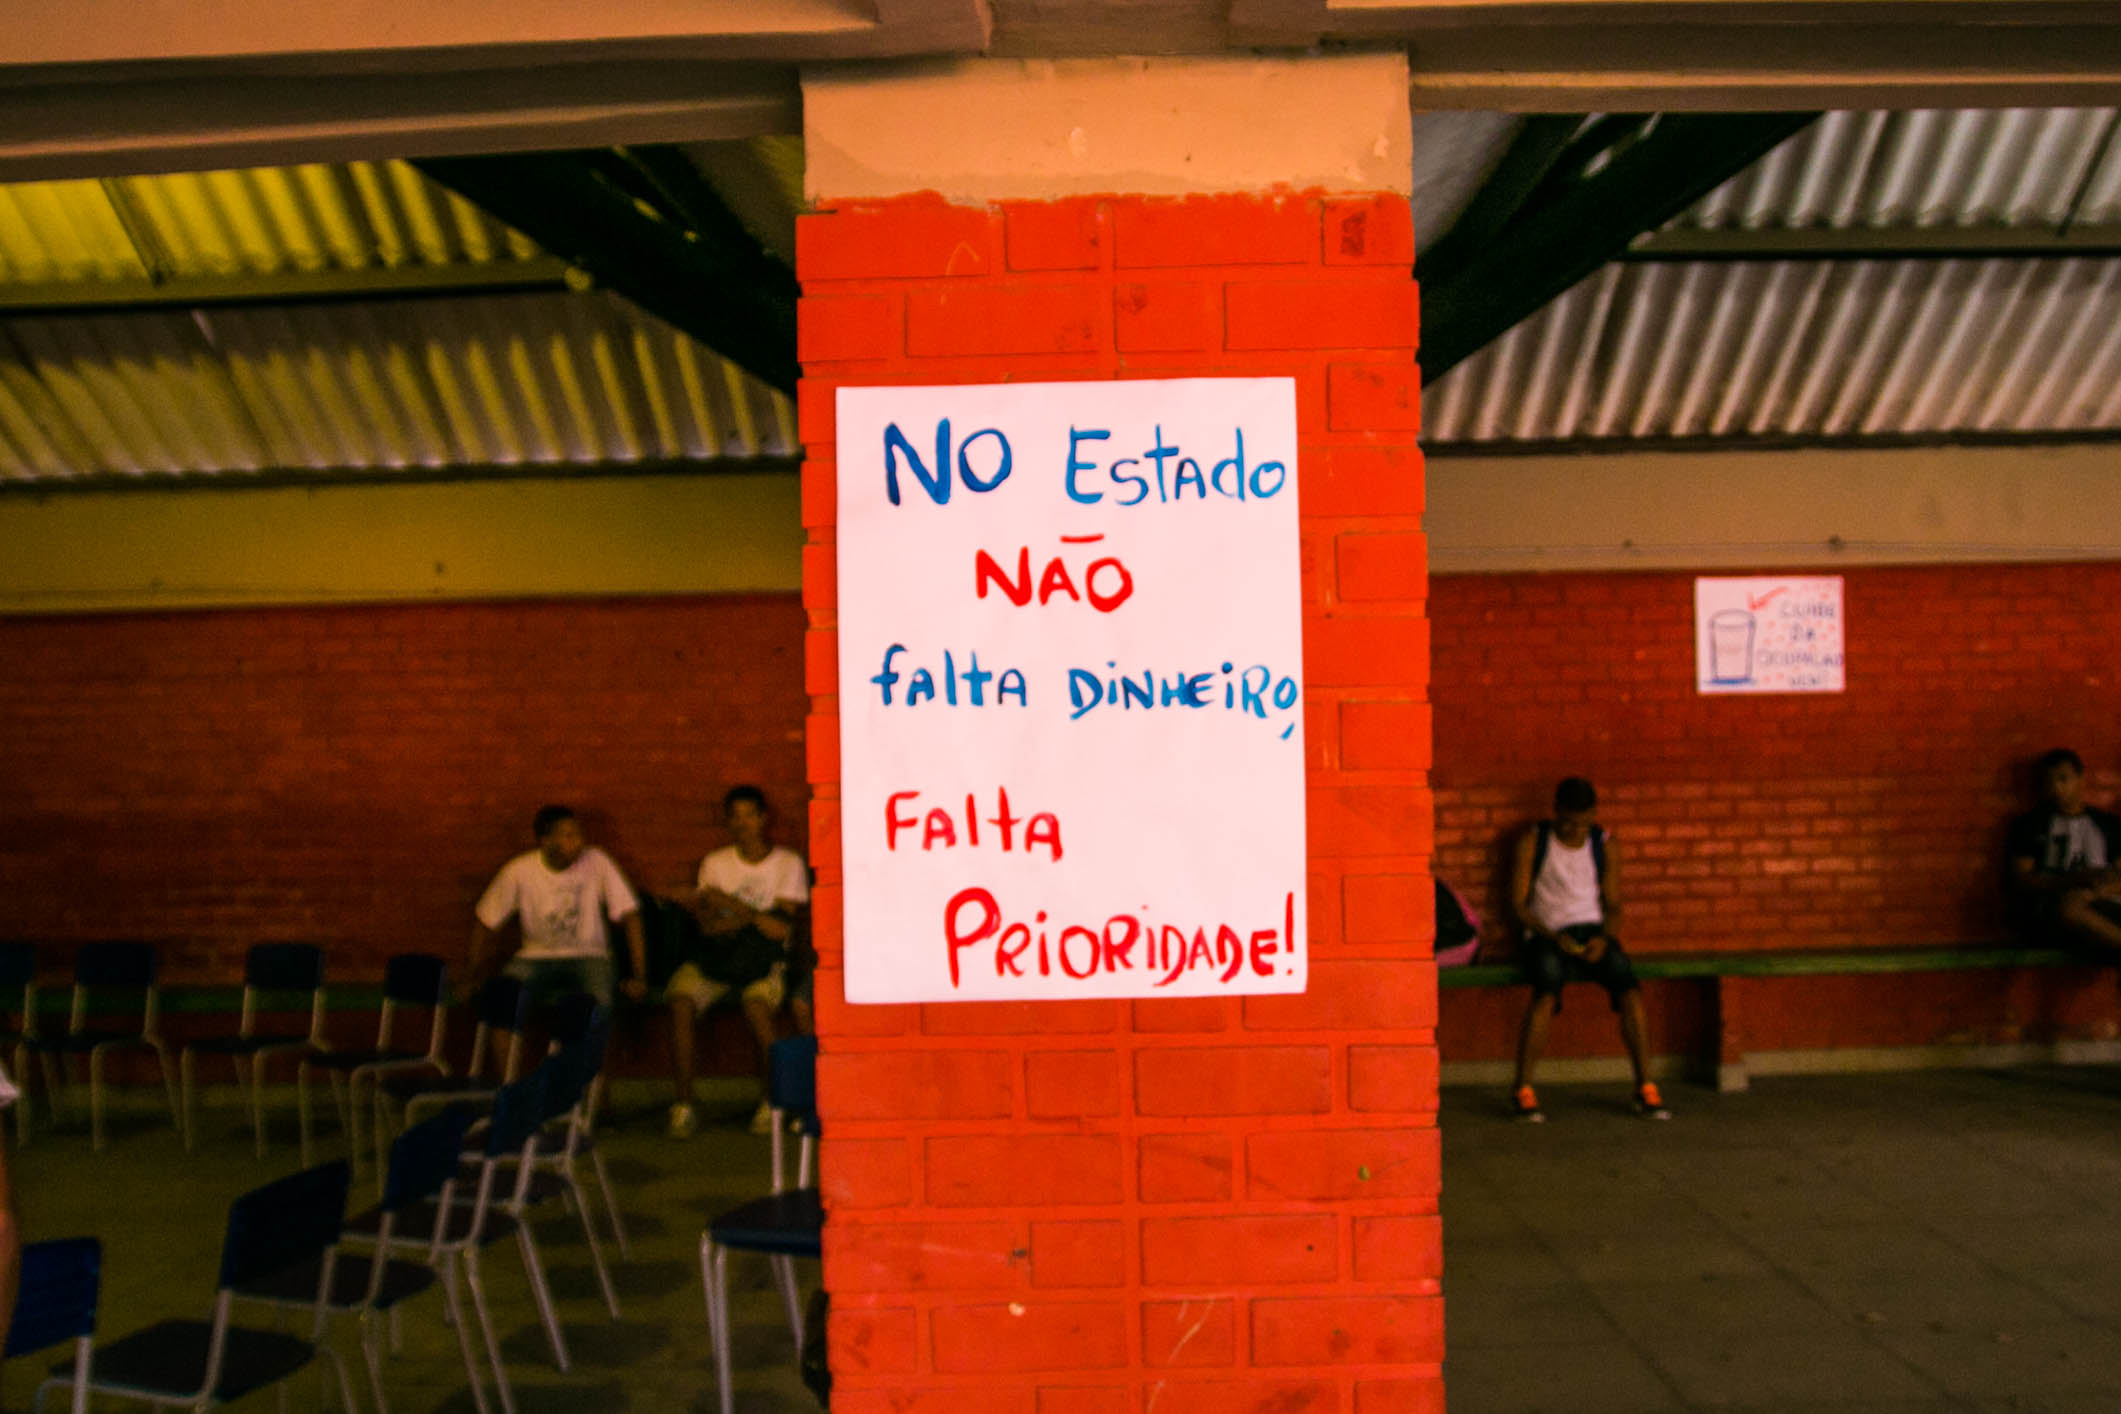 NO EStAdo
NÃO
fAltA DiNHEiRO,
FAltA
PRiORiDADE!
CUIDE
DA